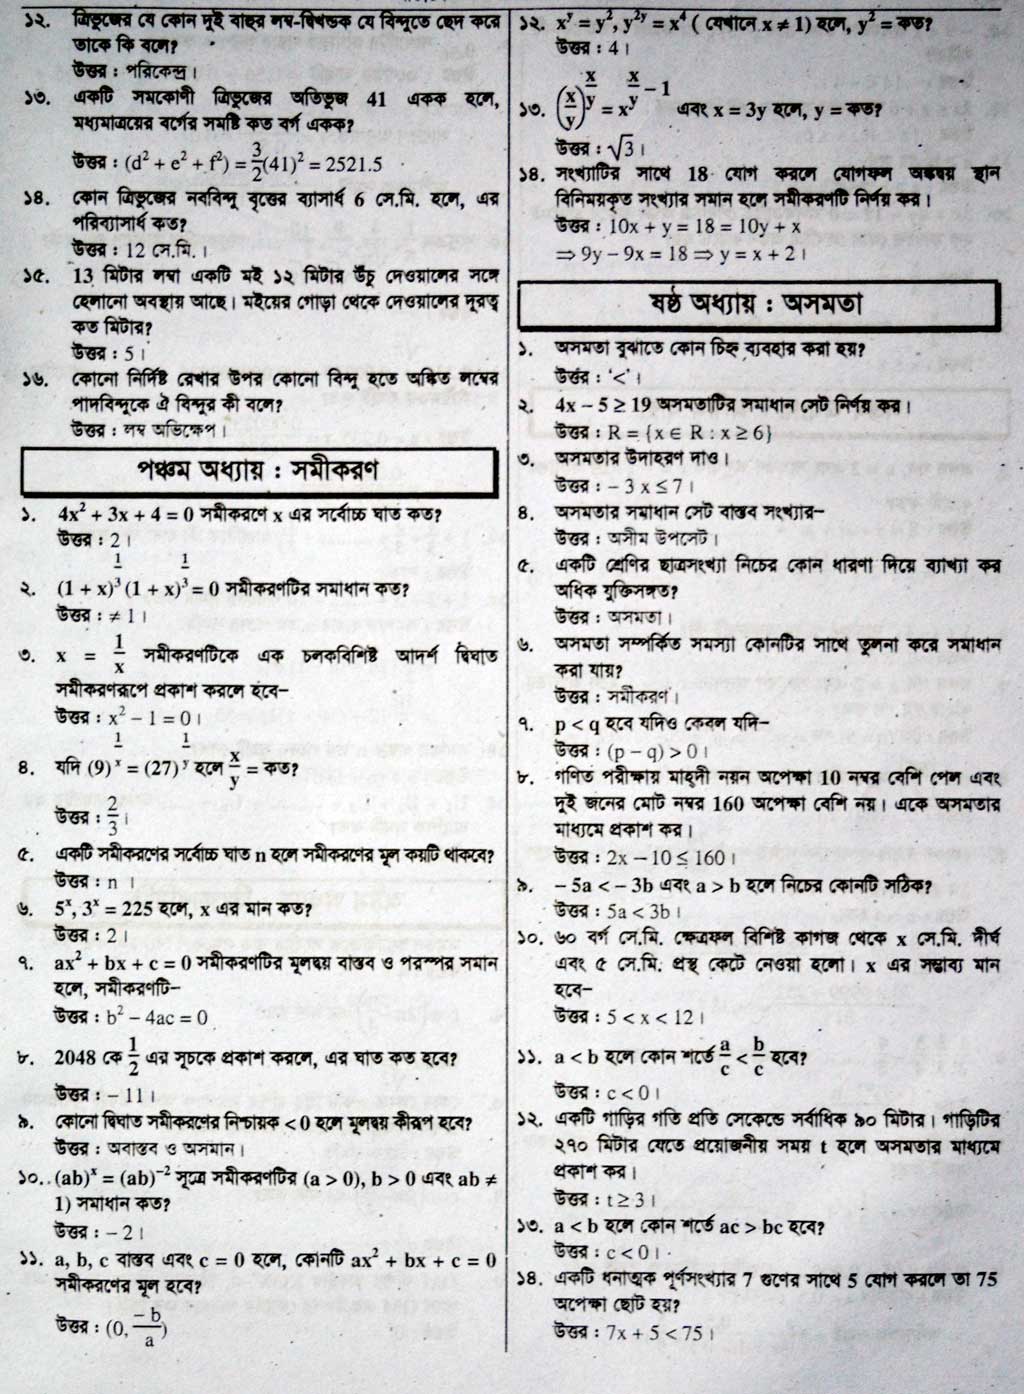 ১২. ত্রিভুজের যে কোন দুই বাহুর লম্ব-দ্বিখন্ডক যে বিন্দুতে ছেদ করে
তাকে কি বলে?
উত্তর : পরিকেন্দ্র।
১৩. একটি সমকোণী ত্রিভুজের অতিভুজ 41 একক হলে,
মধ্যমাত্রয়ের বর্গের সমষ্টি কত বর্গ একক?
উত্তর : (d² + e² + f²) = 3/2(41)² = 2521.5
১৪. কোন ত্রিভুজের নববিন্দু বৃত্তের ব্যাসার্ধ 6 সে.মি. হলে, এর
পরিব্যাসার্ধ কত?
উত্তর : 12 সে.মি. ।
১৫. 13 মিটার লম্বা একটি মই ১২ মিটার উঁচু দেওয়ালের সঙ্গে
হেলানো অবস্থায় আছে। মইয়ের গোড়া থেকে দেওয়ালের দূরত্ব
কত মিটার?
উত্তর : 5।
১৬. কোনো নির্দিষ্ট রেখার উপর কোনো বিন্দু হতে অঙ্কিত লম্বের
পাদবিন্দুকে ঐ বিন্দুর কী বলে?
উত্তর : লম্ব অভিক্ষেপ।
পঞ্চম অধ্যায় : সমীকরণ
১. 4x² + 3x + 4 = 0 সমীকরণে x এর সর্বোচ্চ ঘাত কত?
উত্তর : 2।
২. (1 + x)^(1/3) (1 + x)^(1/3) = 0 সমীকরণটির সমাধান কত?
উত্তর : ≠ 1।
৩. x = 1/x সমীকরণটিকে এক চলকবিশিষ্ট আদর্শ দ্বিঘাত
সমীকরণরূপে প্রকাশ করলে হবে–
উত্তর : x² – 1 = 0।
৪. যদি (9)^(1/x) = (27)^(1/y) হলে x/y = কত?
উত্তর : 2/3।
৫. একটি সমীকরণের সর্বোচ্চ ঘাত n হলে সমীকরণের মূল কয়টি থাকবে?
উত্তর : n ।
৬. 5ˣ, 3ˣ = 225 হলে, x এর মান কত?
উত্তর : 2।
৭. ax² + bx + c = 0 সমীকরণটির মূলদ্বয় বাস্তব ও পরস্পর সমান
হলে, সমীকরণটি–
উত্তর : b² – 4ac = 0
৮. 2048 কে 1/2 এর সূচকে প্রকাশ করলে, এর ঘাত কত হবে?
উত্তর : – 11।
৯. কোনো দ্বিঘাত সমীকরণের নিশ্চায়ক < 0 হলে মূলদ্বয় কীরূপ হবে?
উত্তর : অবাস্তব ও অসমান।
১০.. (ab)ˣ = (ab)⁻² সূত্রে সমীকরণটির (a > 0), b > 0 এবং ab ≠
1) সমাধান কত?
উত্তর : – 2।
১১. a, b, c বাস্তব এবং c = 0 হলে, কোনটি ax² + bx + c = 0
সমীকরণের মূল হবে?
উত্তর : (0, –b/a)
১২. xʸ = y², y²ʸ = x⁴ ( যেখানে x ≠ 1) হলে, y² = কত?
উত্তর : 4।
১৩. (x/y)^(x/y) = x^(x/y – 1) এবং x = 3y হলে, y = কত?
উত্তর : √3।
১৪. সংখ্যাটির সাথে 18 যোগ করলে যোগফল অঙ্কদ্বয় স্থান
বিনিময়কৃত সংখ্যার সমান হলে সমীকরণটি নির্ণয় কর।
উত্তর : 10x + y = 18 = 10y + x
⇒ 9y – 9x = 18 ⇒ y = x + 2।
ষষ্ঠ অধ্যায় : অসমতা
১. অসমতা বুঝাতে কোন চিহ্ন ব্যবহার করা হয়?
উত্তর : ‘<’।
২. 4x – 5 ≥ 19 অসমতাটির সমাধান সেট নির্ণয় কর।
উত্তর : R = {x ∈ R : x ≥ 6}
৩. অসমতার উদাহরণ দাও।
উত্তর : – 3 x ≤ 7।
৪. অসমতার সমাধান সেট বাস্তব সংখ্যার–
উত্তর : অসীম উপসেট।
৫. একটি শ্রেণির ছাত্রসংখ্যা নিচের কোন ধারণা দিয়ে ব্যাখ্যা কর
অধিক যুক্তিসঙ্গত?
উত্তর : অসমতা।
৬. অসমতা সম্পর্কিত সমস্যা কোনটির সাথে তুলনা করে সমাধান
করা যায়?
উত্তর : সমীকরণ।
৭. p < q হবে যদিও কেবল যদি–
উত্তর : (p – q) > 0।
৮. গণিত পরীক্ষায় মাহ্দী নয়ন অপেক্ষা 10 নম্বর বেশি পেল এবং
দুই জনের মোট নম্বর 160 অপেক্ষা বেশি নয়। একে অসমতার
মাধ্যমে প্রকাশ কর।
উত্তর : 2x – 10 ≤ 160।
৯. – 5a < – 3b এবং a > b হলে নিচের কোনটি সঠিক?
উত্তর : 5a < 3b।
১০. ৬০ বর্গ সে.মি. ক্ষেত্রফল বিশিষ্ট কাগজ থেকে x সে.মি. দীর্ঘ
এবং ৫ সে.মি. প্রস্থ কেটে নেওয়া হলো। x এর সম্ভাব্য মান
হবে–
উত্তর : 5 < x < 12।
১১. a < b হলে কোন শর্তে a/c < b/c হবে?
উত্তর : c < 0।
১২. একটি গাড়ির গতি প্রতি সেকেন্ডে সর্বাধিক ৯০ মিটার। গাড়িটির
২৭০ মিটার যেতে প্রয়োজনীয় সময় t হলে অসমতার মাধ্যমে
প্রকাশ কর।
উত্তর : t ≥ 3।
১৩. a < b হলে কোন শর্তে ac > bc হবে?
উত্তর : c < 0।
১৪. একটি ধনাত্মক পূর্ণসংখ্যার 7 গুণের সাথে 5 যোগ করলে তা 75
অপেক্ষা ছোট হয়?
উত্তর : 7x + 5 < 75।